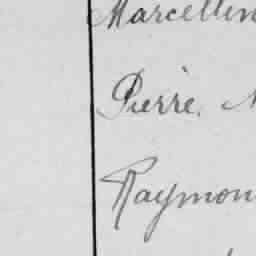 Marcellin
Pierre. 
Raymon